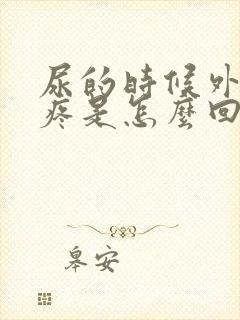 尿的時候外
疼是怎麼回
皋安